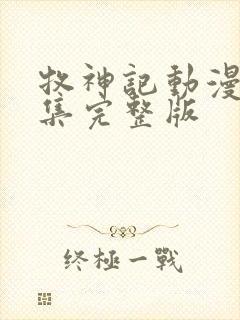 牧神記動漫
集完整版
终極一戰